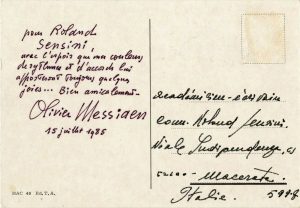 pour Roland
Sensini,
avec l'espoir que mes couleurs
de rythmes et d'accords lui
apporteront toujours quelques
joies... Bien amicalement -
Olivier Messiaen
15 juillet 1985
MAC 48 Ed.T.A.
académicien - écrivain
Roland Sensini
Viale Indipendenza,
Macerata
Italie.